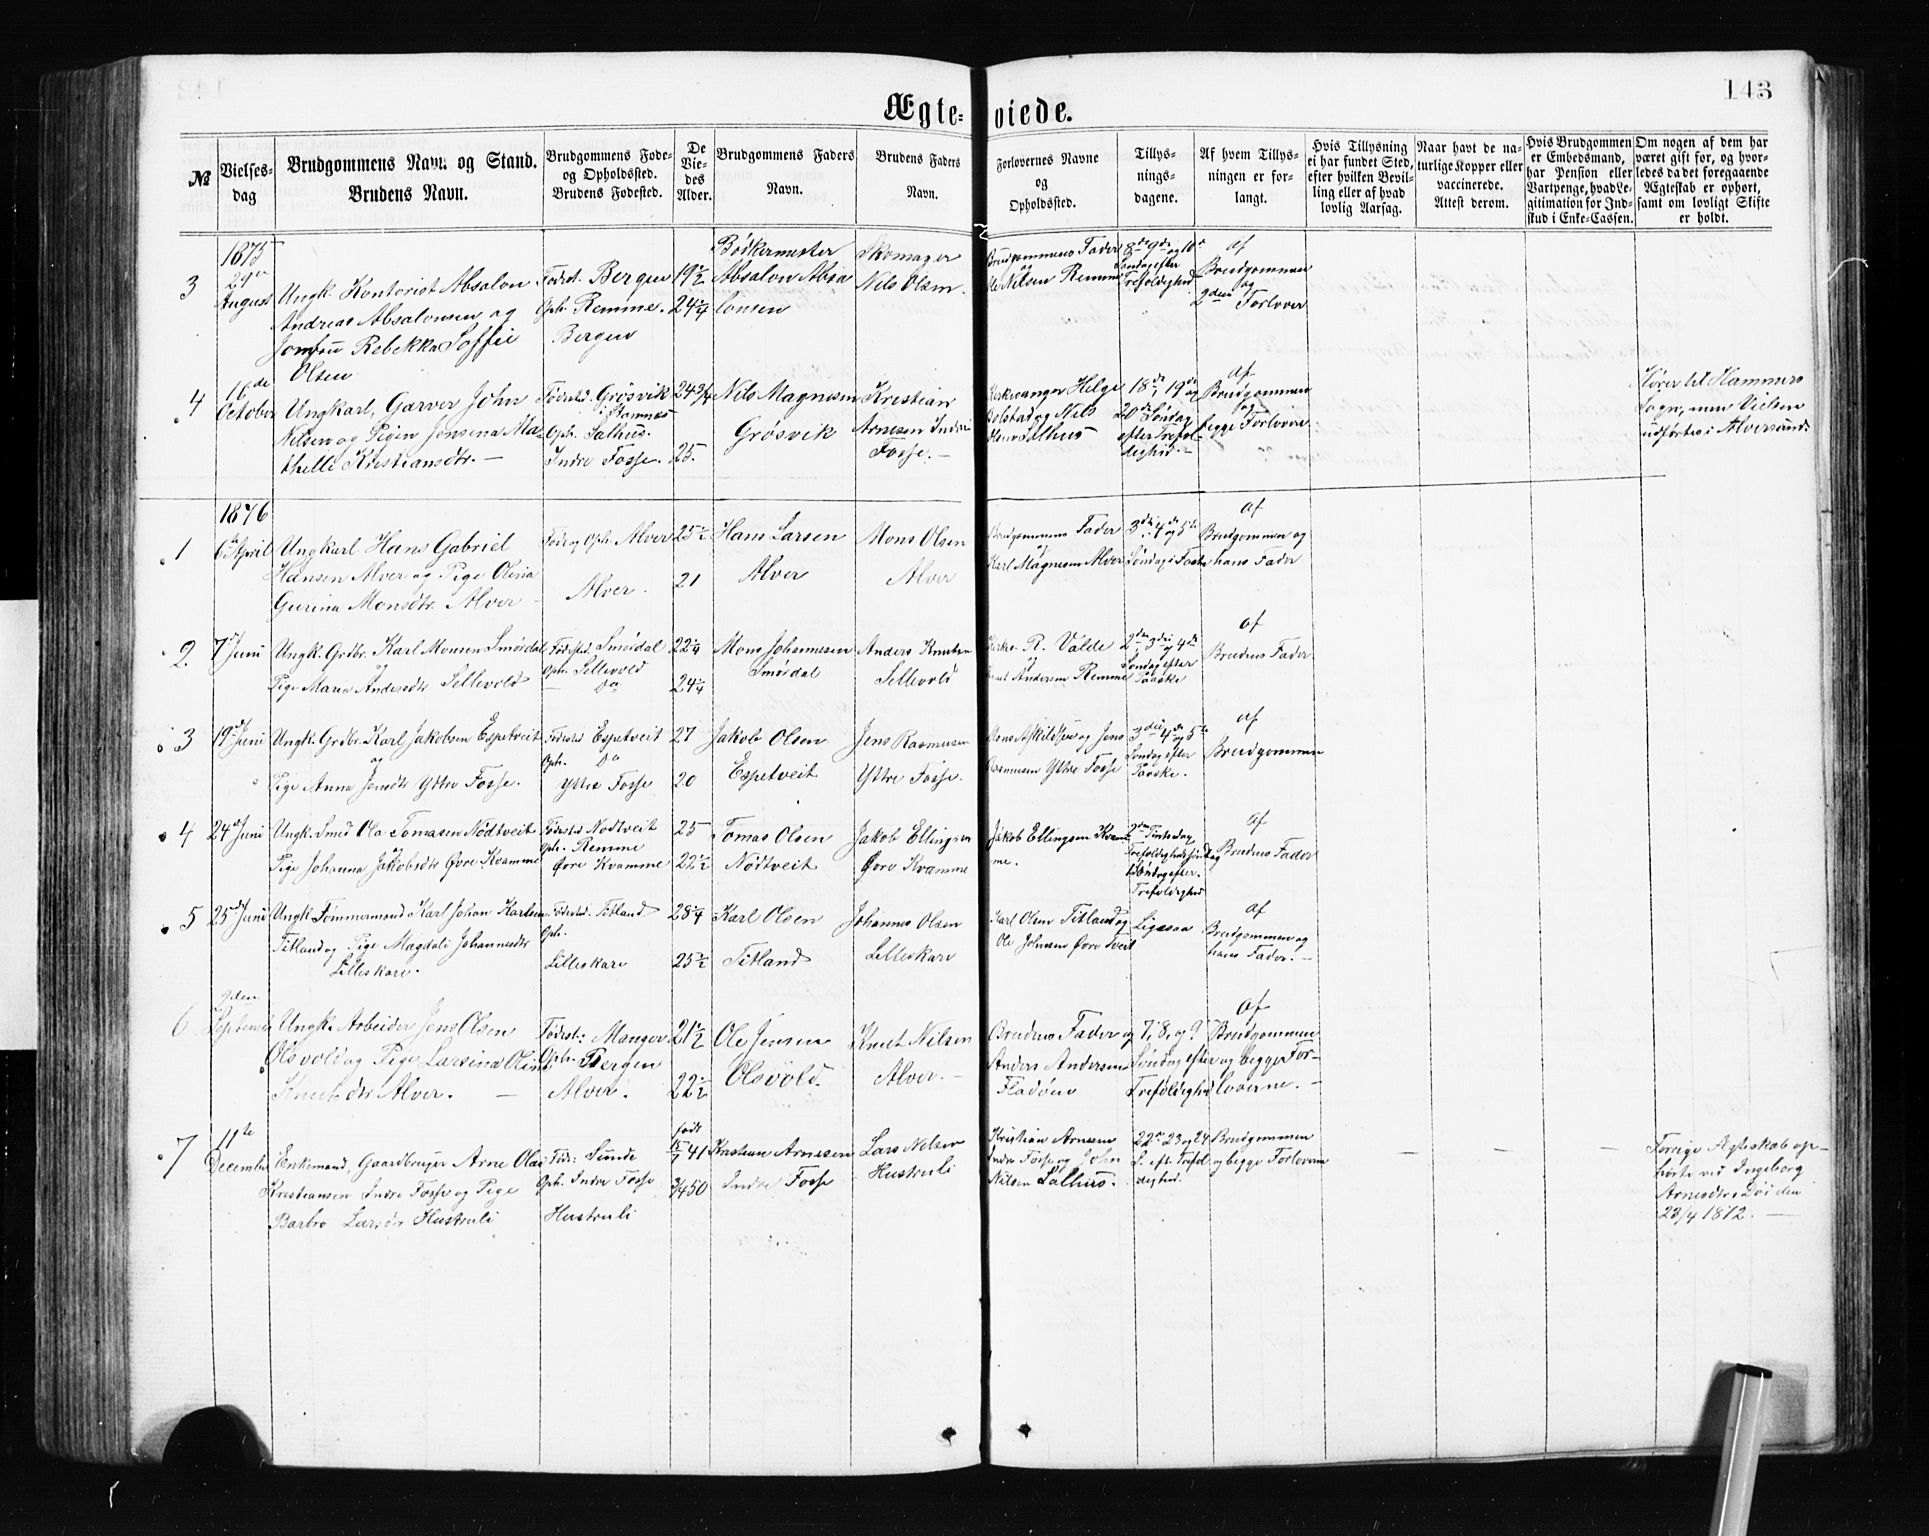 143
Ægte- viede.
№
Vielses-
dag
Brudgommens Navn og Stand.
Brudens Navn.
Brudgommens Føde-
og Opholdssted.
Brudens Fødested.
De
Vie-
des
Alder.
Brudgommens Faders
Navn.
Brudens Faders
Navn.
Forlovernes Navne
og
Opholdssted.
Tillys-
nings-
dagene.
Af hvem Tillys-
ningen er for-
langt.
Hvis Tillysning
ei har fundet Sted,
efter hvilken Bevil-
ling eller af hvad
lovlig Aarsag.
Naar havt de na-
turlige Kopper eller
vaccinerede.
Attest derom.
Hvis Brudgommen
er Embedsmand,
har Pension eller
Vartpenge, hvad Le-
gitimation for Ind-
skud i Enke-Cassen.
Om nogen af dem har
været gift for, og hvor-
ledes da det foregaaende
Ægteskab er ophørt,
samt om lovligt Skifte
er holdt.
3
1875
29de
August
Ungk. Kontorist Absalon
Andreas Absalonsen og
Jomfru Rebekka Soffie
Olsen
Fødst. Bergen
Oph. Remme.
Bergen
19½
24¼
Bødkermester
Absalon Absa
lonsen
Skomager
Nils Olsen.
Brudgommens Fader
og
Nilsen Remme
8de 9de og 10de
Søndag efter
Trefoldighed
af
Brudgommen
og
2den Forlover
4
16de
October
Ungkarl, Garver John
Nilsen og Pigen Jensena Ma-
thelle Kristiansdtr. —
Fødested. Grøsvik
i Hamnes
Oph. Salhus.
Indre Fosse.
24¾
25.
Nils Magnesen
Grøsvik
Kristian
Arnesen Indre
Fosse. —
Kirkesanger Helge
og Nils
Salhus
18de, 19de og
20de Søndag
efter Trefol-
dighed. —
af
Brudgommen
og
begge Forlovere
Hører til Hammers
Sogn, men Vielsen
udførtes i Alversund.
1
1876
6te April
Ungkarl Hans Gabriel
Hansen Alver og Pige Olina
Gurina Monsdtr. Alver —
Føde og Oph. Alver
Alver.
25½
21
Hans Larsen
Alver
Mons Olsen
Alver
Brudgommens Fader
og
Karl Magnesen Alver
3die 4de og 5te
Søndag i Faste
af
Brudgommen og
hans Fader
2
7de Juni
Ungk. Grdbr. Karl Monsen Smørdal
og
Pige Maria Andersdtr Sellevold
Fødested Smørdal
Oph. Sellevold
— Do
22¼
24¼
Mons Johannesen
Smørdal
Anders Knutsen
Sellevold
Kirkes. R. Valde
og
Andersen Remme
2den 3die og 4de
Søndag efter
Paaske
af
Brudens Fader
3
19de Juni
Ungk. Grdbr. Karl Jakobsen Espetveit
og
Pige Anna Jensdtr Yttre Fosse.
Fødested Espetveit
Oph. Do
Yttre Fosse
27
20
Jakob Olsen
Espetveit
Jens Rasmusen
Yttre Fosse.
Mons Askildsen og Jens
Rasmusen Yttre Fosse
3die 4de og 5te
Søndag efter
Paaske.
af
Brudgommen
4
24de Juni
Ungk. Smed Ola Tomasen Nødtveit
og
Pige Johanna Jakobsdtr Øvre Kvamme
Fødested Nødtveit
Oph. Remme
Øvre Kvamme
25
22½
Tomas Olsen
Nødtveit
Jakob Ellingsen
Øvre Kvamme
Jakob Ellingsen Kvam-
me.
2den Pintsedag
Trefoldighedssøndag
1 Søndag efter
Trefoldighed
af
Brudens Fader
5
25de Juni
Ungk. Tømmermand Karl Johan Karlsen
Titland og Pige Magdeli Johannesdtr
Lilleskare.
Fødested. Titland
Oph.
Lilleskare
28¼
25½
Karl Olsen
Titland
Johannes Olsen
Lilleskare
Karl Olsen Titland og
Ole Johnsen Øvre Tveit
Ligesaa
af
Brudgommen og
hans Fader. —
6
9den
Septemb.
Ungk. Arbeider Jens Olsen
Olsvold og Pige Larsina Olina
Knutsdtr Alver. —
Fødest: Manger
Oph. Bergen
Alver.
21½
22½
Ole Jensen
Olsvold.
Knut Nilsen
Alver. —
Brudens Fader og
Anders Andersen
Fladøen
7, 8, og 9
Søndag efter
Trefoldighed
af
Brudgommen
og begge For-
loverne. —
7
11te
December
Enkemand, Gaardbruger Arne Olai
Kristiansen Indre Fosse og Pige
Barbro Larsdtr Hustruli
Fød: Sunde
Oph. Indre Fosse
Hustruli
født
15/7 41
3/4 50
Kristian Arnesen
Indre Fosse
Lars Nilsen
Hustruli
Kristian Arnesen
Indre Fosse og John
Nilsen Salhus.
22de 23 og 24
S. eft. Trefol-
dighed.
Brudgommen
og begge Forloverne
— — —
Forrige Ægteskab op-
hørte ved Ingeborg
Arnesdtrs Død den
23/4 1872. —